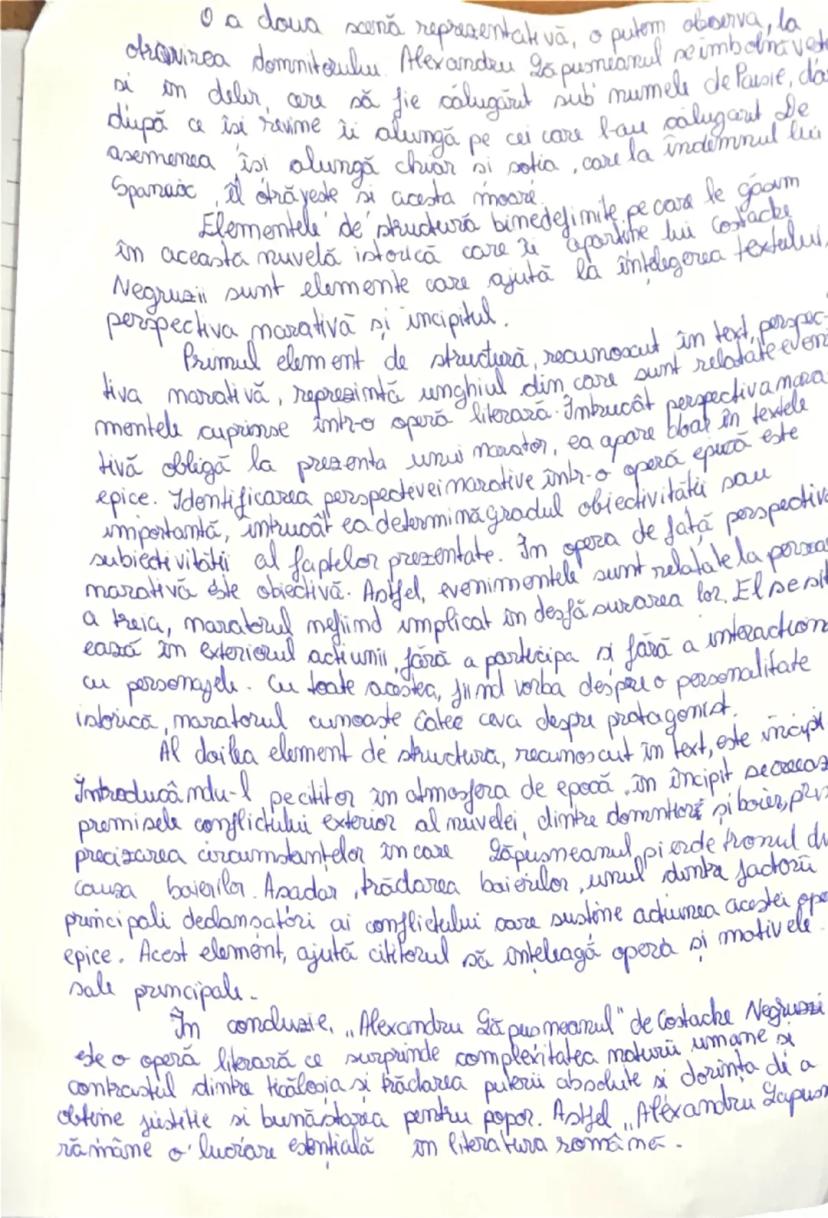 O a doua scenă reprezentativă, o putem observa, la
otrăvirea domnitorului. Alexandru Lăpușneanul se îmbolnăvește
și în delir, cere să fie călugărit sub numele de Paisie, dar
după ce își revine îi alungă pe cei care l-au călugărit. De
asemenea își alungă chiar și soția, care la îndemnul lui
Spancioc, îl otrăvește și acesta moare.
Elementele de structură binedefinite, pe care le găsim
în aceasta nuvelă istorică care îi aparține lui Costache
Negruzii sunt elemente care ajută la înțelegerea textului,
perspectiva narativă și incipitul.
Primul element de structură, recunoscut în text, perspec-
tiva narativă, reprezintă unghiul din care sunt relatate eveni
mentele cuprinse într-o operă literară. Întrucât perspectiva nara-
tivă obligă la prezența unui narator, ea apare doar în textele
epice. Identificarea perspectivei narative într-o operă epică este
importantă, întrucât ea determină gradul obiectivității sau
subiectivității al faptelor prezentate. În opera de față perspectiva
narativă este obiectivă. Astfel, evenimentele sunt relatate la persoa
a treia, naratorul nefiind implicat în desfășurarea lor. El se sit
ează în exteriorul acțiunii, fără a participa și fără a interacționa
cu personajele. Cu toate acestea, fiind vorba despre o personalitate
istorică, naratorul cunoaște câtec ceva despre protagonist.
Al doilea element de structura, recunoscut în text, este incipi
Introducându-l pe cititor în atmosfera de epocă, în incipit se creeaz
premisele conflictului exterior al nuvelei, dintre domnitor și boieri, prin
precizarea circumstanțelor în care Lăpușneanul, pierde tronul din
cauza boierilor. Așadar, trădarea boierilor, unul dintre factorii
principali declanșatori ai conflictului care susține acțiunea acestei ope
epice. Acest element, ajută cititorul să înțeleagă opera și motivele
sale principale.
În concluzie, „Alexandru Lăpușneanul" de Costache Negruzzi
este o operă literară ce surprinde complexitatea naturii umane și
contrastul dintre ticăloșia și trădarea puterii absolute și dorința de a
obține justiție și bunăstarea pentru popor. Astfel „Alexandru Lapușn
rămâne o lucrare esențială în literatura română.